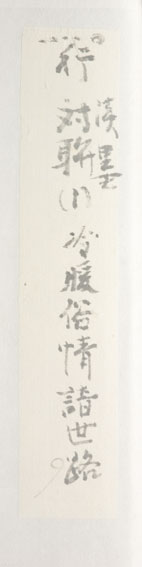 行 対聯(1) 冷暖俗情諳世路
淡墨